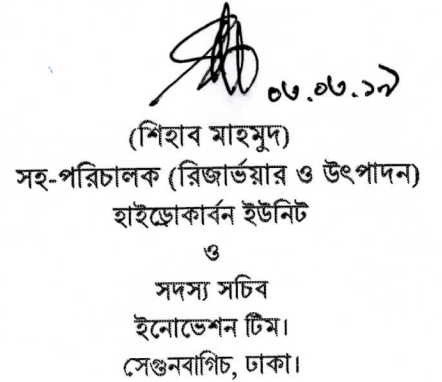 ০৩.০৩.১৯
(শিহাব মাহমুদ)
সহ-পরিচালক (রিজার্ভয়ার ও উৎপাদন)
হাইড্রোকার্বন ইউনিট
ও
সদস্য সচিব
ইনোভেশন টিম।
সেগুনবাগিচ, ঢাকা।